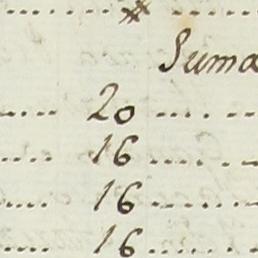 Suma
20
16
16
16